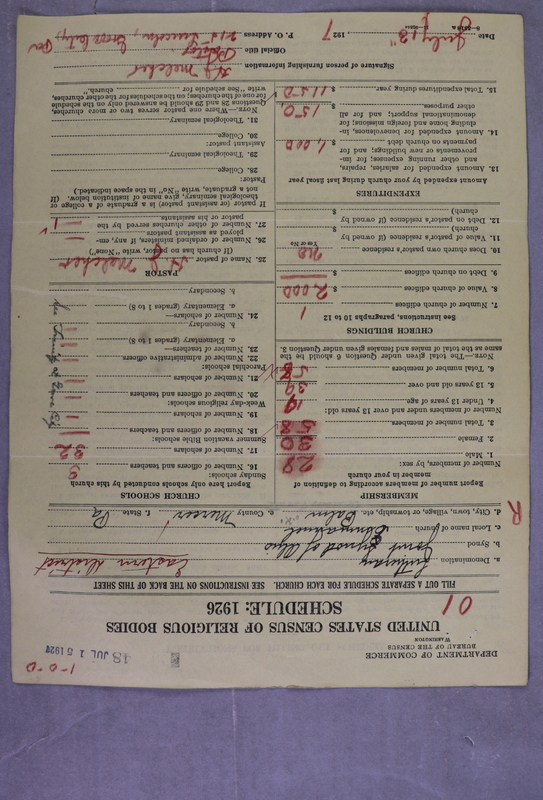 DEPARTMENT OF COMMERCE
BUREAU OF THE CENSUS
WASHINGTON
1-0-0
48 JUL 15 1927
UNITED STATES CENSUS OF RELIGIOUS BODIES
SCHEDULE: 1926
01
FILL OUT A SEPARATE SCHEDULE FOR EACH CHURCH. SEE INSTRUCTIONS ON THE BACK OF THIS SHEET
a. Denomination Lutheran Eastern District
b. Synod Joint Synod of Ohio
c. Local name of church Emmanuel
d. City, town, village, or township, etc. Balm e. County Mercer f. State Pa
R
MEMBERSHIP
Report number of members according to definition of
member in your church
Number of members, by sex:
1. Male 28
2. Female 30
3. Total number of members 58
Number of members under and over 13 years old:
4. Under 13 years of age 19
5. 13 years old and over 39
6. Total number of members 58
NOTE.—The total given under Question 6 should be the
same as the total of males and females given under Question 3.
CHURCH BUILDINGS
See instructions, paragraphs 10 to 12
7. Number of church edifices 1
8. Value of church edifices $ 2000
9. Debt on church edifices $
10. Does church own pastor's residence no
Yes or No
11. Value of pastor's residence (if owned by
church) $
12. Debt on pastor's residence (if owned by
church) $
EXPENDITURES
Amount expended by your church during last fiscal year
13. Amount expended for salaries, repairs,
and other running expenses; for im-
provements or new buildings; and for
payments on church debt $ 1,000
14. Amount expended for benevolences, in-
cluding home and foreign missions; for
denominational support; and for all
other purposes $ 150
15. Total expenditures during year $ 1150
CHURCH SCHOOLS
Report here only schools conducted by this church
Sunday schools:
16. Number of officers and teachers 3
17. Number of scholars 32
Summer vacation Bible schools:
18. Number of officers and teachers
19. Number of scholars
Week-day religious schools:
20. Number of officers and teachers
21. Number of scholars
Parochial schools:
22. Number of administrative officers
23. Number of teachers—
a. Elementary (grades 1 to 8)
b. Secondary
24. Number of scholars—
a. Elementary (grades 1 to 8)
b. Secondary
PASTOR
25. Name of pastor H J Melcher
(If church has no pastor, write "None")
26. Number of ordained ministers, if any, em-
ployed as assistant pastors
27. Number of other churches served by the
pastor or his assistants 1
If pastor (or assistant pastor) is a graduate of a college or
theological seminary, give name of institution below. (If
not a graduate, write "No" in the space indicated.)
Pastor:
28. College
29. Theological seminary
Assistant pastor:
30. College
31. Theological seminary
NOTE.—Where one pastor serves two or more churches,
Questions 28 and 29 should be answered only on the schedule
for one of the churches; on the schedules for the other churches,
write "See schedule for church."
Signature of person furnishing information H J Melcher
Official title Pastor
P. O. Address 215 Lincoln, Grove City, Pa
Date July 13" 1927